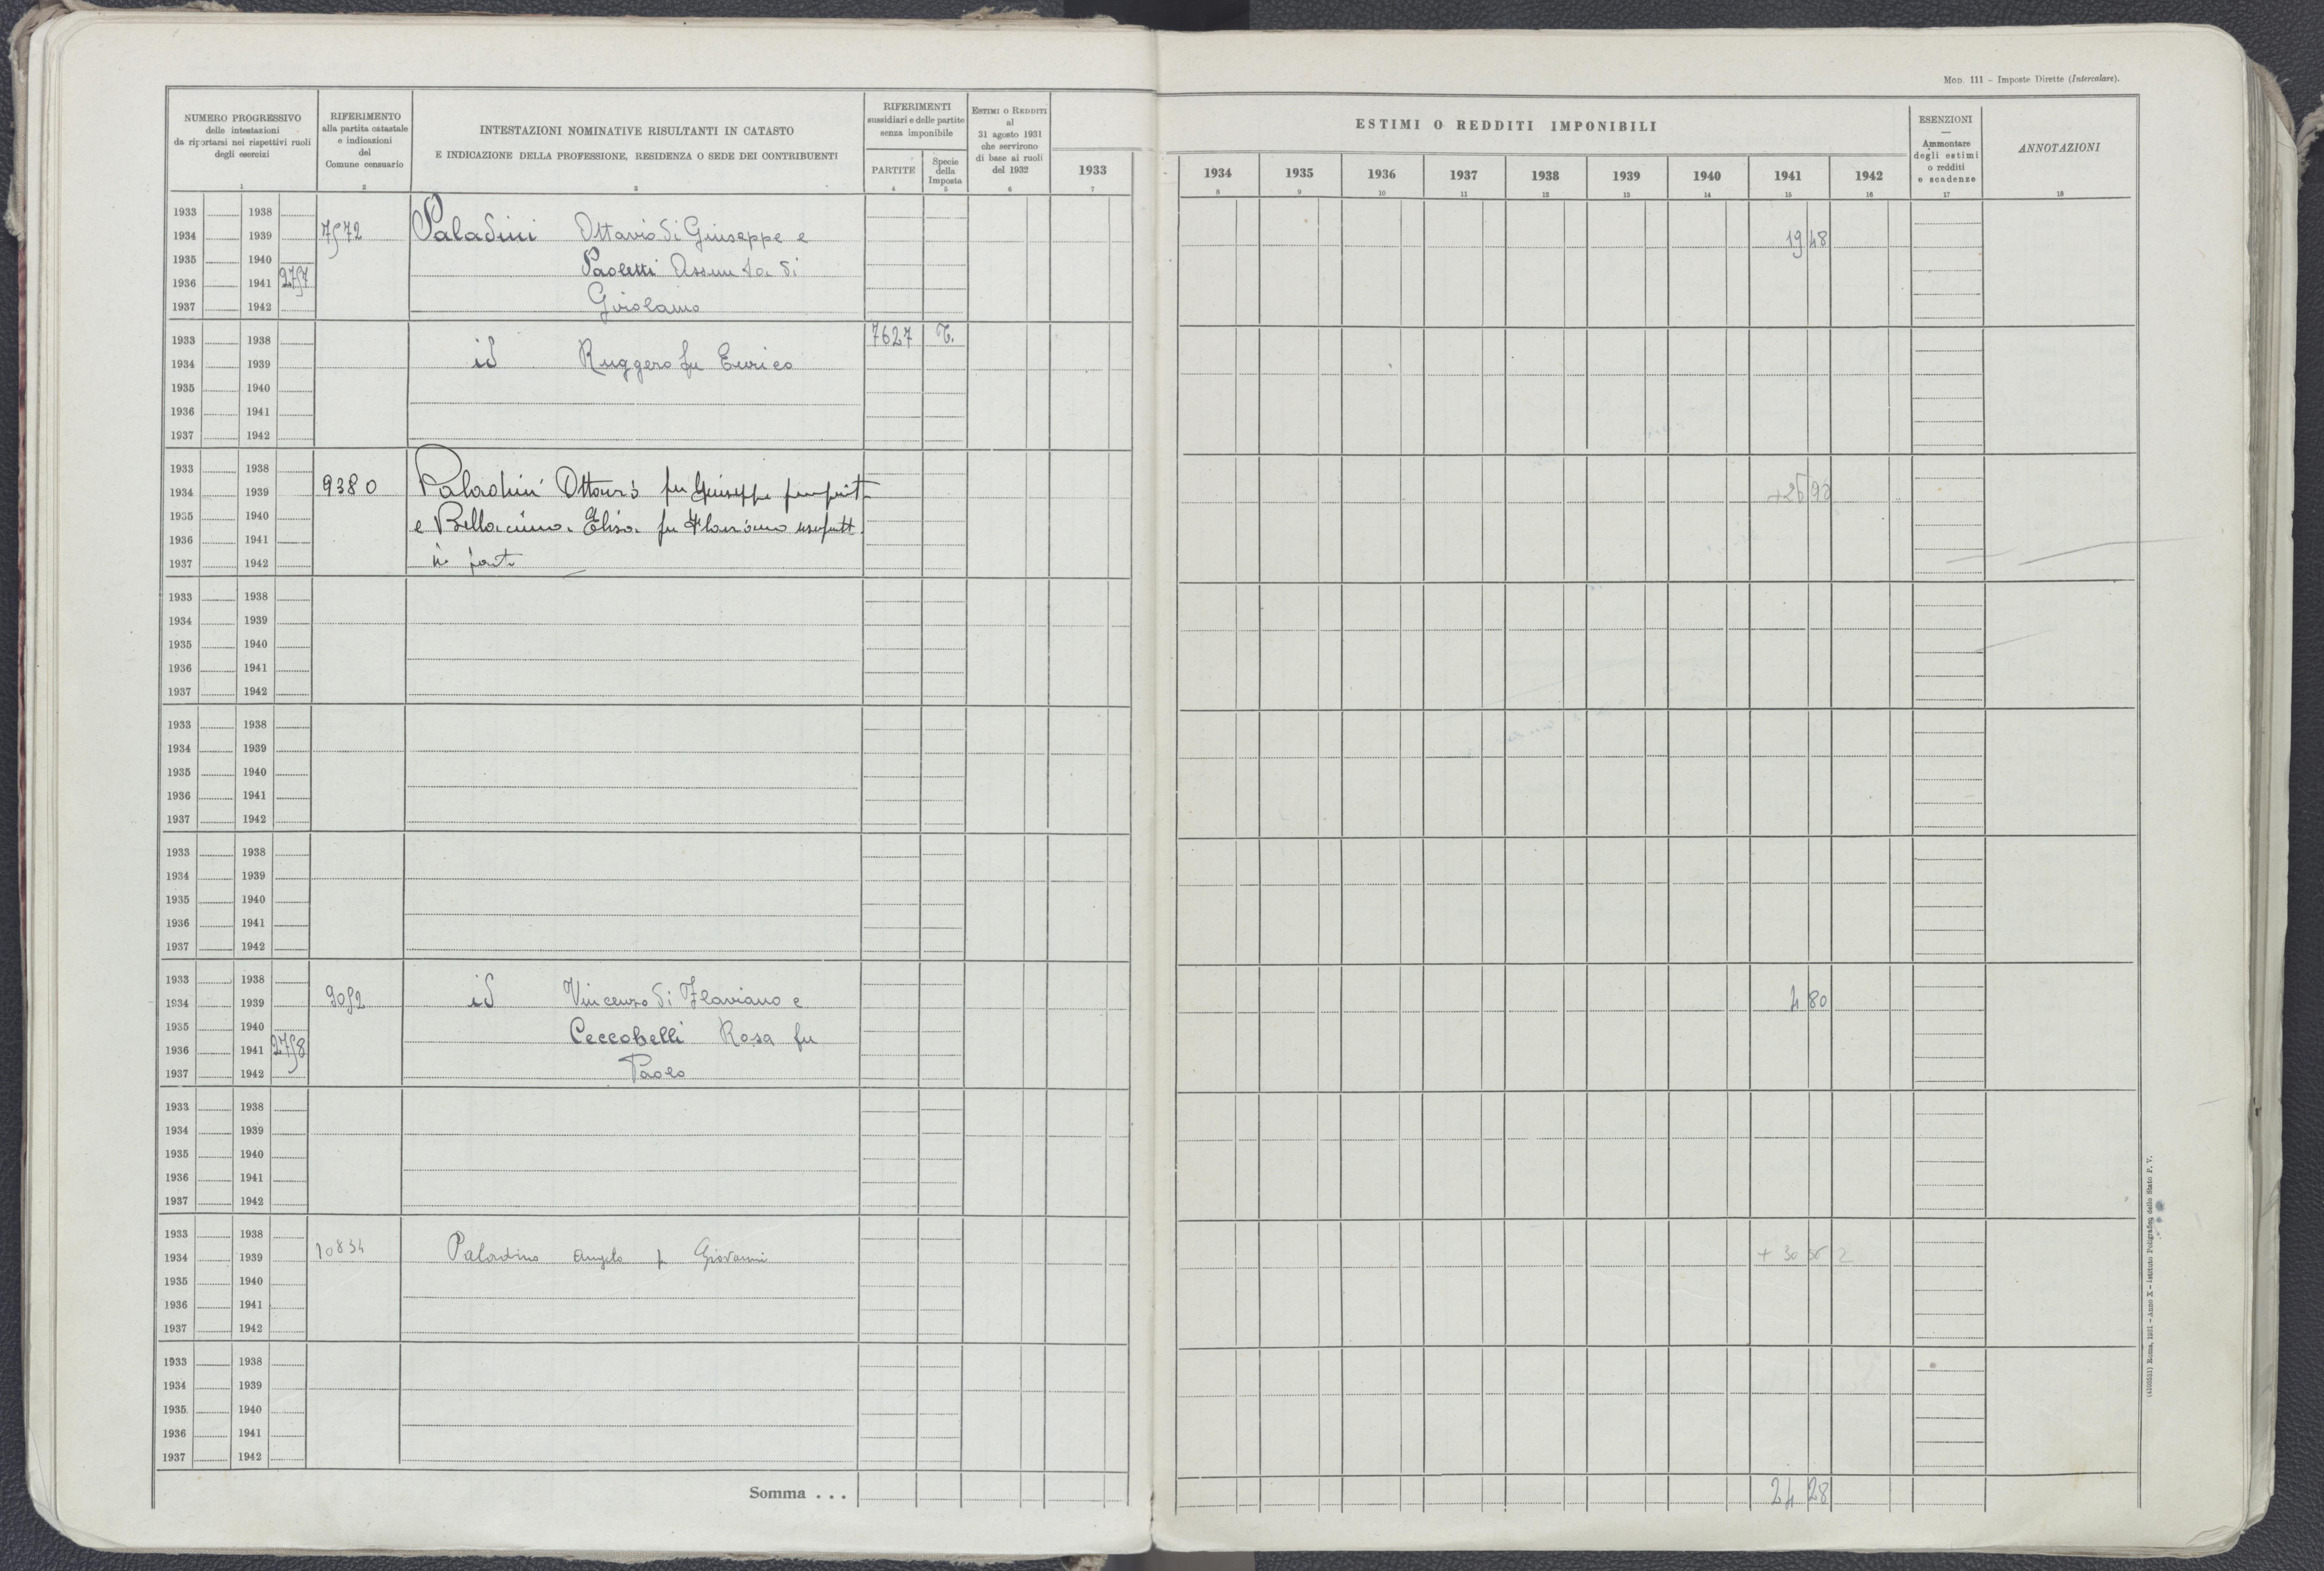 Mod. 111 - Imposte Dirette (Intercalare).
NUMERO PROGRESSIVO
delle intestazioni
da riportarsi nei rispettivi ruoli
degli esercizi
RIFERIMENTO
alla partita catastale
e indicazioni
del
Comune censuario
INTESTAZIONI NOMINATIVE RISULTANTI IN CATASTO
E INDICAZIONE DELLA PROFESSIONE, RESIDENZA O SEDE DEI CONTRIBUENTI
RIFERIMENTI
sussidiari e delle partite
senza imponibile
PARTITE
Specie
della
Imposta
ESTIMI O REDDITI
al
31 agosto 1931
che servirono
di base ai ruoli
del 1932
ESTIMI O REDDITI IMPONIBILI
1933 1934 1935 1936 1937 1938 1939 1940 1941 1942
ESENZIONI
—
Ammontare
degli estimi
o redditi
e scadenze
ANNOTAZIONI
1 2 3 4 5 6 7 8 9 10 11 12 13 14 15 16 17 18
1933 1938
1934 1939 7572 Paladini Ottavio di Giuseppe e 19 48
1935 1940 Paoletti Assunta di
1936 1941 2757
1937 1942 Girolamo
1933 1938 7627 T.
1934 1939 id Ruggero fu Enrico
1935 1940
1936 1941
1937 1942
1933 1938
1934 1939 9380 Paladini Ottavio fu Giuseppe
1935 1940 e Elisa fu usufrutt.
1936 1941
1937 1942 in parte
1933 1938
1934 1939
1935 1940
1936 1941
1937 1942
1933 1938
1934 1939
1935 1940
1936 1941
1937 1942
1933 1938
1934 1939
1935 1940
1936 1941
1937 1942
1933 1938
1934 1939 9052 id Vincenzo di Flaviano e 4 80
1935 1940 Ceccobelli Rosa fu
1936 1941 2758
1937 1942 Paolo
1933 1938
1934 1939
1935 1940
1936 1941
1937 1942
1933 1938
1934 1939 10834 Paladino Angelo f Giovanni
1935 1940
1936 1941
1937 1942
1933 1938
1934 1939
1935 1940
1936 1941
1937 1942
Somma . . . 24 28
Roma, 1931 - Anno X - Istituto Poligrafico dello Stato P. V.